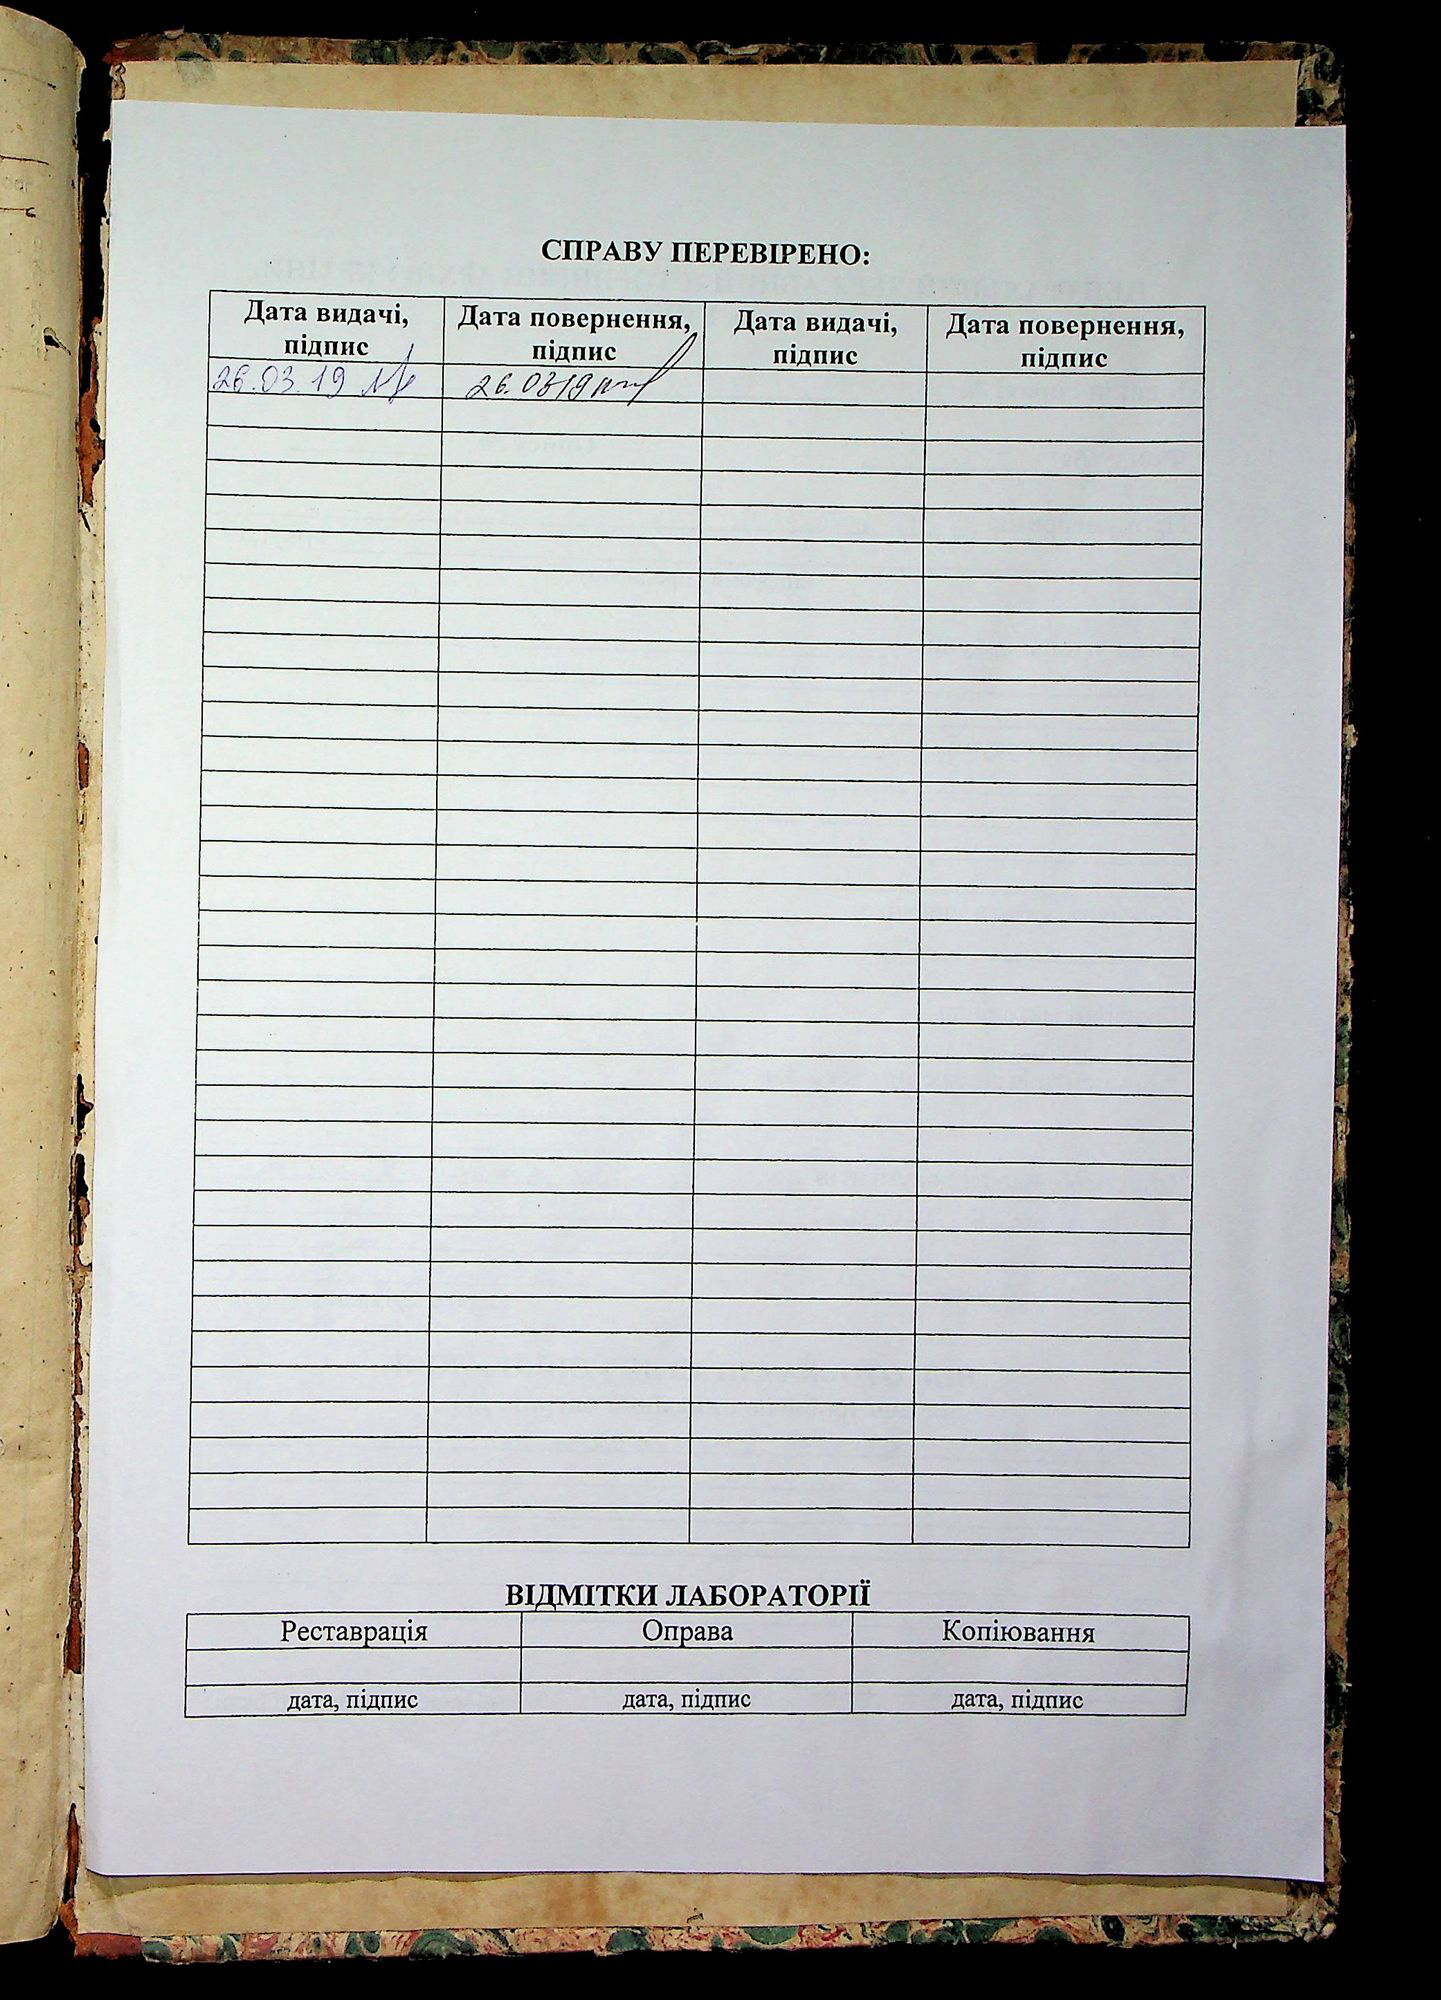 СПРАВУ ПЕРЕВІРЕНО:
Дата видачі, підпис
Дата повернення, підпис
Дата видачі, підпис
Дата повернення, підпис
26.03.19
26.0319
ВІДМІТКИ ЛАБОРАТОРІЇ
Реставрація Оправа Копіювання
дата, підпис дата, підпис дата, підпис